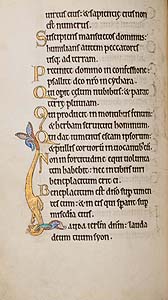 uirtus eius: & sapientie eius non
est numerus.
Suscipiens mansuetos dominus:
humilians autem peccatores
usq; ad terram.
Precinite domino in confessione:
psallite deo nro in cythara.
Qui operit celum nubibus: & parat
terre pluuiam.
Qui producit in montibus fenum:
& herbam seruituti hominum.
&
Non in fortitudine equi uoluntatem
habebit: nec in tibiis uiri
beneplacitum erit ei.
Beneplacitum est dno super timen
tes eum: & in eis qui sperant sup
misericordia eius.
Lauda ierlm dnm: lauda
deum tuum syon.